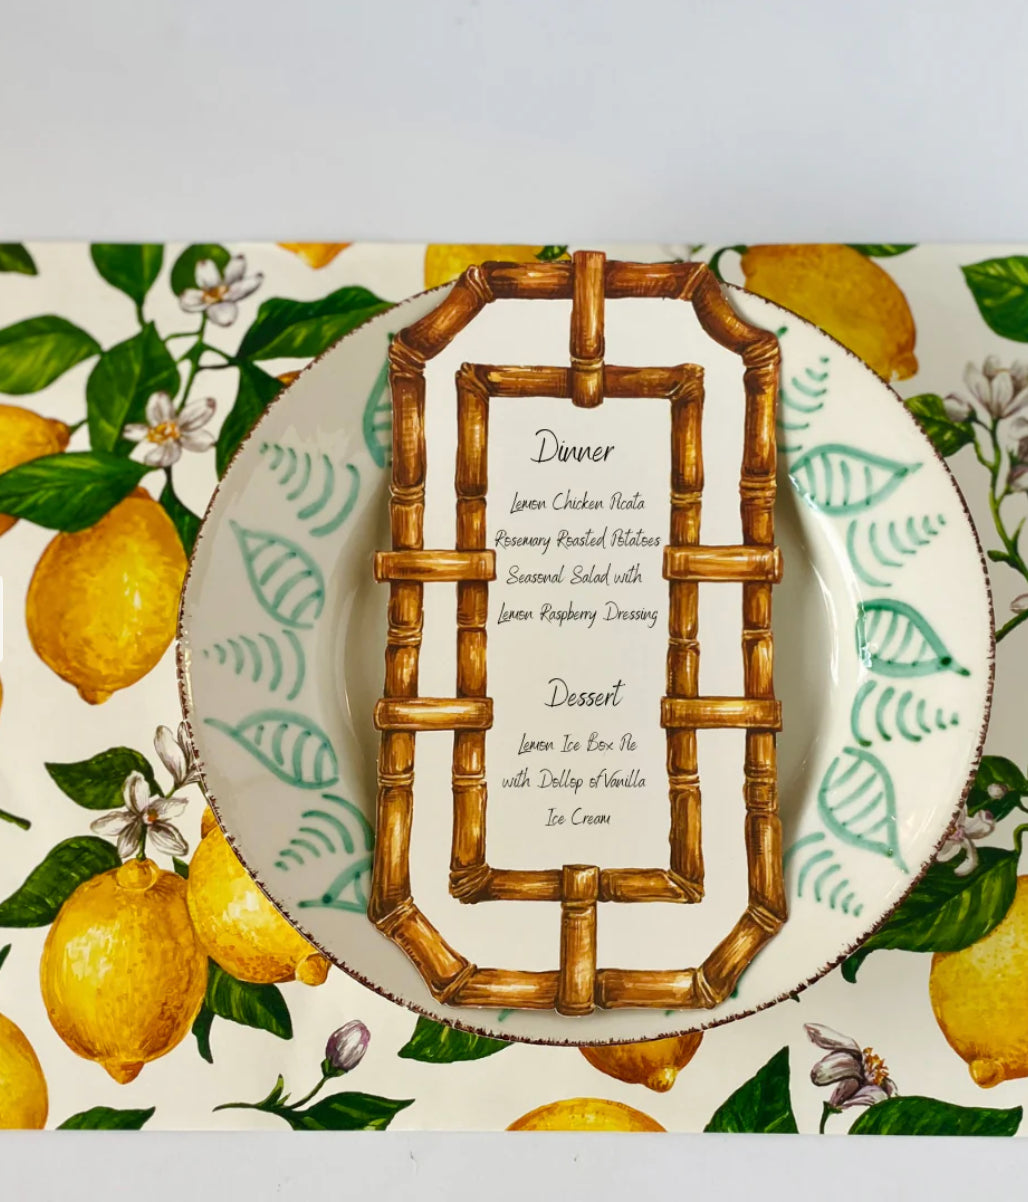 Dinner
Lemon Chicken Picata
Rosemary Roasted Potatoes
Seasonal Salad with
Lemon Raspberry Dressing
Dessert
Lemon Ice Box Pie
with Dollop of Vanilla
Ice Cream